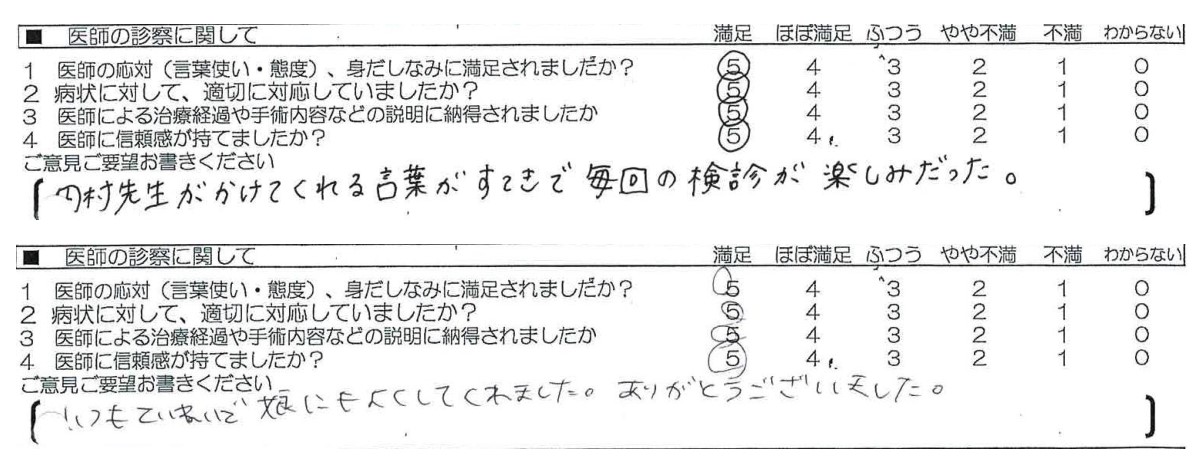 ■ 医師の診察に関して 満足 ほぼ満足 ふつう やや不満 不満 わからない
1 医師の応対（言葉使い・態度）、身だしなみに満足されましたか？ 5 4 3 2 1 0
2 病状に対して、適切に対応していましたか？ 5 4 3 2 1 0
3 医師による治療経過や手術内容などの説明に納得されましたか 5 4 3 2 1 0
4 医師に信頼感が持てましたか？ 5 4 3 2 1 0
ご意見ご要望お書きください
[田村先生がかけてくれる言葉がすてきで毎回の検診が楽しみだった。]
■ 医師の診察に関して 満足 ほぼ満足 ふつう やや不満 不満 わからない
1 医師の応対（言葉使い・態度）、身だしなみに満足されましたか？ 5 4 3 2 1 0
2 病状に対して、適切に対応していましたか？ 5 4 3 2 1 0
3 医師による治療経過や手術内容などの説明に納得されましたか 5 4 3 2 1 0
4 医師に信頼感が持てましたか？ 5 4 3 2 1 0
ご意見ご要望お書きください
[いつもていねいで娘にもよくしてくれました。ありがとうございました。]